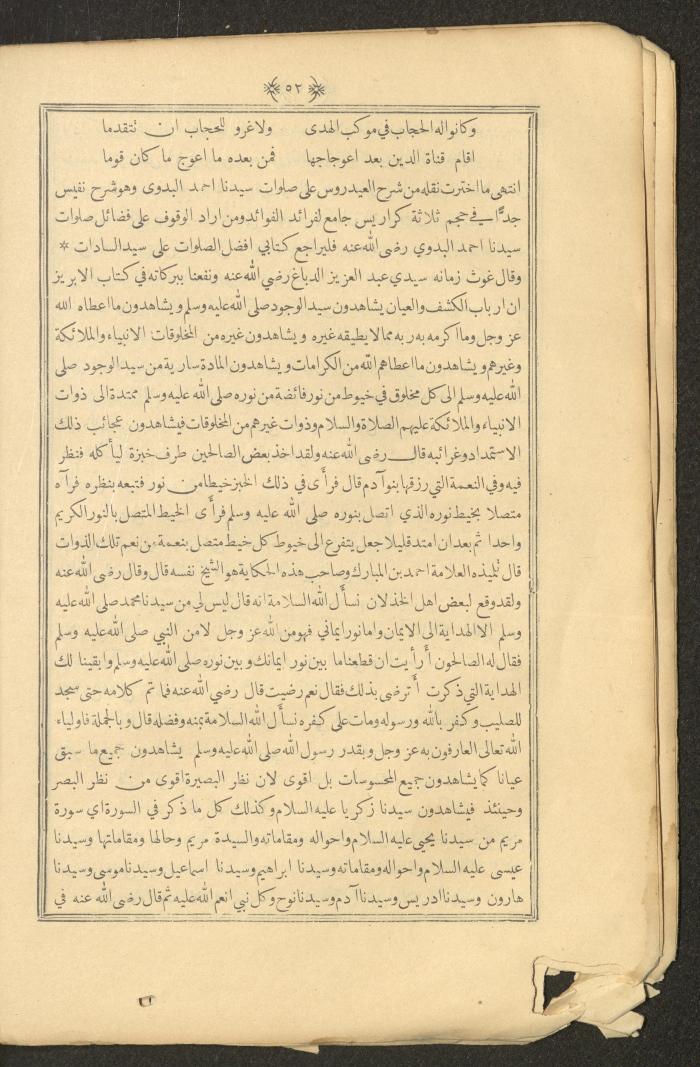 ٥٢
وكانوا له الحجاب في موكب الهدى ولا غرو للحجاب ان تتقدما
اقام قناة الدين بعد اعوجاجها فمن بعده ما اعوج ما كان قوما
انتهى ما اخترت نقله من شرح العيدروس على صلوات سيدنا احمد البدوى وهو شرح نفيس
جدًّا في حجم ثلاثة كراريس جامع لفرائد الفوائد ومن اراد الوقوف على فضائل صلوات
سيدنا احمد البدوي رضى الله عنه فليراجع كتابي افضل الصلوات على سيد السادات *
وقال غوث زمانه سيدي عبد العزيز الدباغ رضي الله عنه ونفعنا ببركاته في كتاب الابريز
ان ارباب الكشف والعيان يشاهدون سيد الوجود صلى الله عليه وسلم ويشاهدون ما اعطاه الله
عز وجل وما اكرمه به ربه مما لا يطيقه غيره ويشاهدون غيره من المخلوقات الانبياء والملائكة
وغيرهم ويشاهدون ما اعطاهم الله من الكرامات ويشاهدون المادة سارية من سيد الوجود صلى
الله عليه وسلم الى كل مخلوق في خيوط من نور فائضة من نوره صلى الله عليه وسلم ممتدة الى ذوات
الانبياء والملائكة عليهم الصلاة والسلام وذوات غيرهم من المخلوقات فيشاهدون عجائب ذلك
الاستمداد وغرائبه قال رضى الله عنه ولقد اخذ بعض الصالحين طرف خبزة ليأكله فنظر
فيه وفي النعمة التي رزقها بنو آدم قال فرأى في ذلك الخبز خيطا من نور فتبعه بنظره فرآه
متصلا بخيط نوره الذي اتصل بنوره صلى الله عليه وسلم فرأى الخيط المتصل بالنور الكريم
واحدا ثم بعد ان امتد قليلا جعل يتفرع الى خيوط كل خيط متصل بنعمة من نعم تلك الذوات
قال تلميذه العلامة احمد بن المبارك وصاحب هذه الحكاية هو الشيخ نفسه قال وقال رضى الله عنه
ولقد وقع لبعض اهل الخذلان نسأل الله السلامة انه قال ليس لي من سيدنا محمد صلى الله عليه
وسلم الا الهداية الى الايمان واما نور ايماني فهو من الله عز وجل لا من النبي صلى الله عليه وسلم
فقال له الصالحون أرأيت ان قطعنا ما بين نور ايمانك وبين نوره صلى الله عليه وسلم وابقينا لك
الهداية التي ذكرت أترضى بذلك فقال نعم رضيت قال رضي الله عنه فما تم كلامه حتى سجد
للصليب وكفر بالله ورسوله ومات على كفره نسأل الله السلامة بمنه وفضله قال وبالجملة فاولياء
الله تعالى العارفون به عز وجل وبقدر رسول الله صلى الله عليه وسلم يشاهدون جميع ما سبق
عيانا كما يشاهدون جميع المحسوسات بل اقوى لان نظر البصيرة اقوى من نظر البصر
وحينئذ فيشاهدون سيدنا زكريا عليه السلام وكذلك كل ما ذكر في السورة اي سورة
مريم من سيدنا يحيى عليه السلام واحواله ومقاماته والسيدة مريم وحالها ومقاماتها وسيدنا
عيسى عليه السلام واحواله ومقاماته وسيدنا ابراهيم وسيدنا اسماعيل وسيدنا موسى وسيدنا
هارون وسيدنا ادريس وسيدنا آدم وسيدنا نوح وكل نبي انعم الله عليه ثم قال رضى الله عنه في